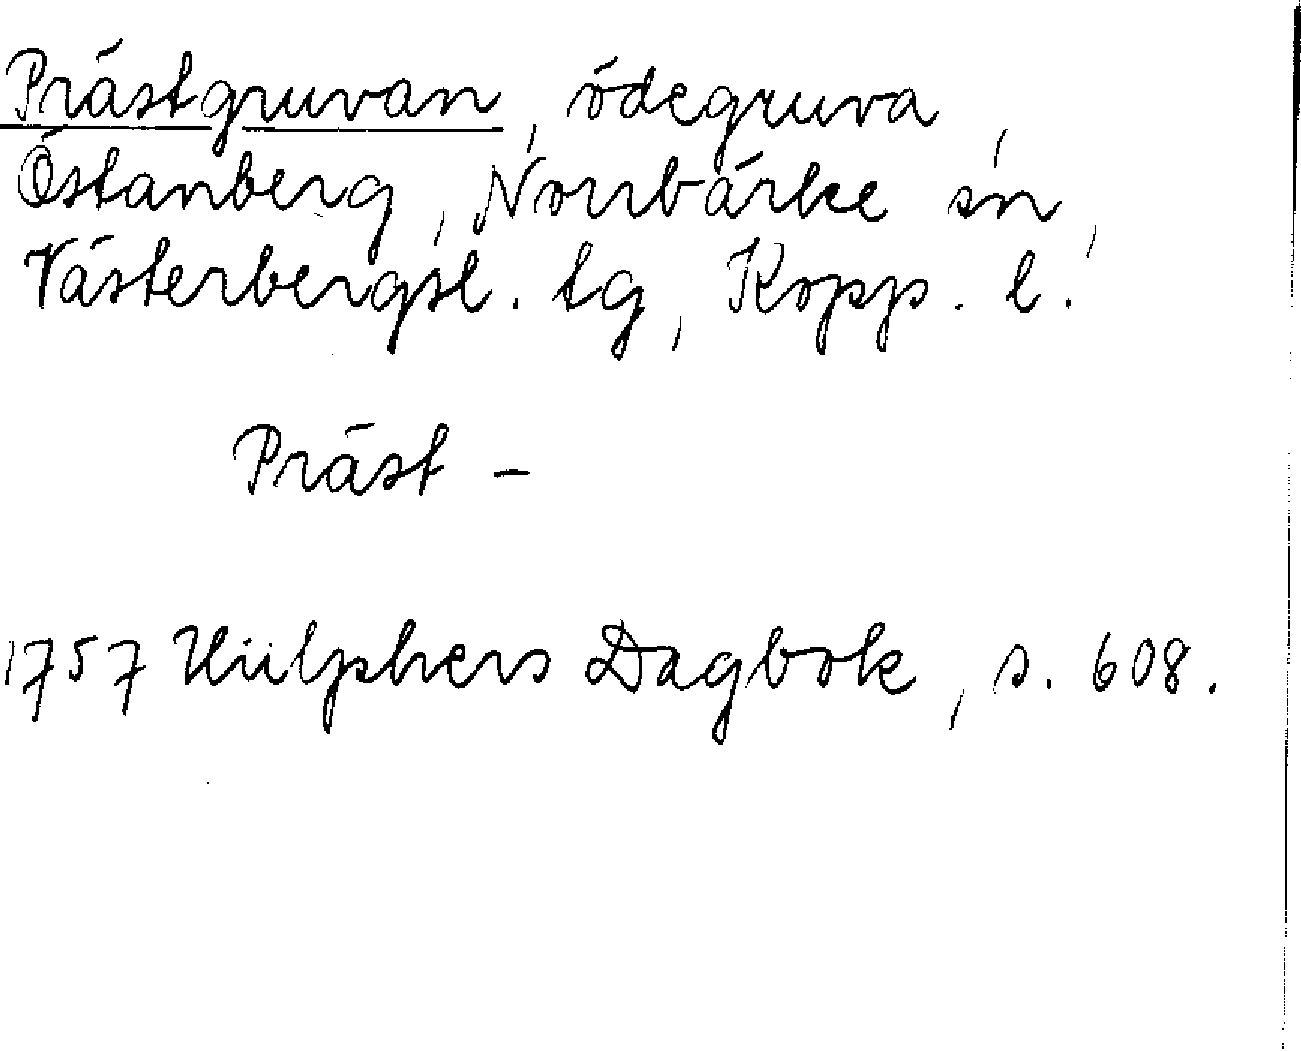 Prästgruvan, ödegruva,
Östanberg, Norrbärke sn,
Västerbergsl. tg, Kopp. l.
Präst -
1757 Hülphers Dagbok, s. 608.